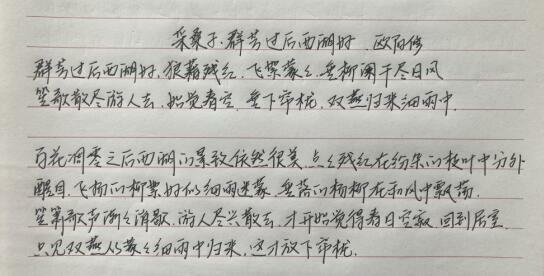 采桑子·群芳过后西湖好 欧阳修
群芳过后西湖好，狼藉残红，飞絮蒙々，垂柳阑干尽日风
笙歌散尽游人去，始觉春空，垂下帘栊，双燕归来细雨中
百花凋零之后西湖的景致依然很美，点々残红在纷杂的枝叶中分外
醒目，飞扬的柳絮时似细雨迷蒙，垂落的杨柳在和风中飘荡，
笙箫歌声渐々消歇，游人尽兴散去，才开始觉得春日空寂，回到居室，
只见双燕从蒙々细雨中归来，这才放下帘栊。